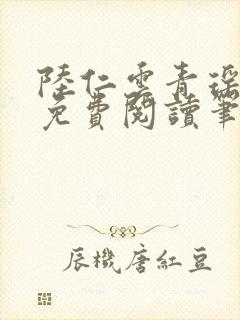 陸仁雲青瑤
免費閱讀筆
辰機唐紅豆